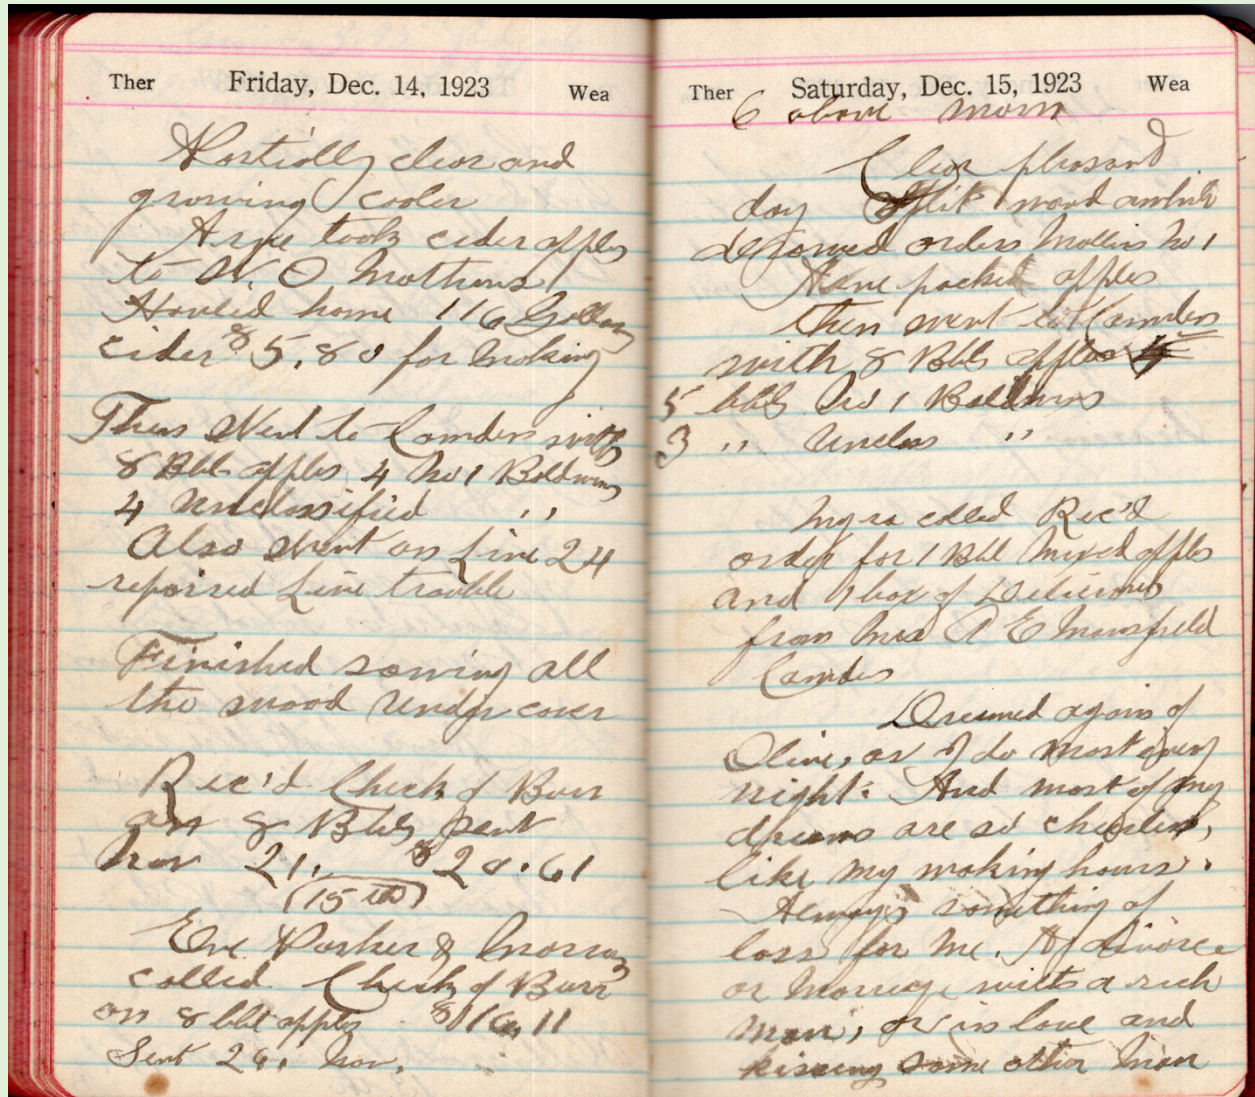 Ther Friday, Dec. 14, 1923 Wea
Partially clear and
growing cooler
took cider apples
to W. O Mathews
Hauled home 116 Gallons
cider $5.80 for making
Then Went to Camden with
8 Bbl apples 4 No 1 Baldwins
4 Unclassified "
Also Went on Line 24
repaired Line trouble
Finished sawing all
the wood under cover
Rec'd Check of Burr
on 8 Bbls sent
Nov 21.
(15 th)
Eve Parker &
called Check of Burr
on 8 bbl apples
Sent Nov.
Ther Saturday, Dec. 15, 1923 Wea
6 above morn
Clear pleasant
day split wood awhile
orders No 1
packed apples
then went to Camden
with 8 Bbls apples
5 bbls No 1 Baldwins
3 " Unclass "
Myra called Rec'd
order for 1 Bbl Mixed apples
and 1 box of Delicious
from Mrs A E Mansfield
Camden
Dreamed again of
Olive, as I do most every
night. And most of my
dreams are so cheerless,
like my waking hours.
Always something of
loss for me. A divorce
or Marriage with a rich
man, or in love and
kissing some other man